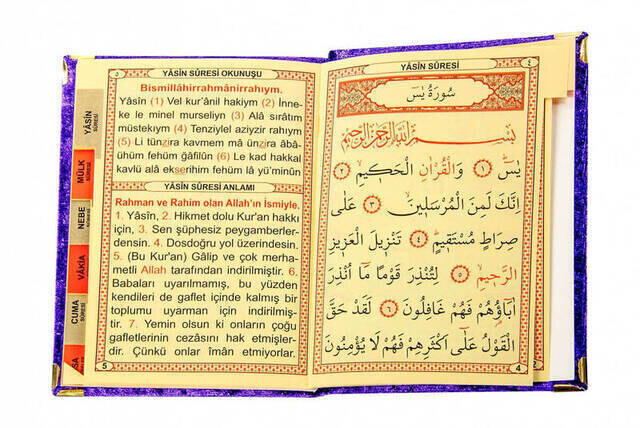 YÂSİN SÛRESİ
٤
سُورَةُ يٰسٓ
بِسْمِ اللّٰهِ الرَّحْمٰنِ الرَّحِيمِ
يٰسٓ ﴿١﴾ وَالْقُرْاٰنِ الْحَكِيمِ ﴿٢﴾
اِنَّكَ لَمِنَ الْمُرْسَلِينَ ﴿٣﴾ عَلٰى
صِرَاطٍ مُسْتَقِيمٍ ﴿٤﴾ تَنْزِيلَ الْعَزِيزِ
الرَّحِيمِ ﴿٥﴾ لِتُنْذِرَ قَوْمًا مَٓا اُنْذِرَ
اٰبَٓاؤُ۬هُمْ فَهُمْ غَافِلُونَ ﴿٦﴾ لَقَدْ حَقَّ
الْقَوْلُ عَلٰٓى اَكْثَرِهِمْ فَهُمْ لَا يُؤْمِنُونَ
4
2
٥
YÂSİN SÛRESİ OKUNUŞU
Bismillâhirrahmânirrahıym.
Yâsîn (1) Vel kur'ânil hakiym (2) İnne-
ke le minel murseliyn (3) Alâ sırâtım
müstekıym (4) Tenziylel aziyzir rahıym
(5) Li tünzira kavmem mâ ünzira âbâ-
ühüm fehüm ğâfilûn (6) Le kad hakkal
kavlü alâ ekserihim fehüm lâ yü'minûn
YÂSİN SÛRESİ ANLAMI
Rahman ve Rahim olan Allah'ın İsmiyle.
1. Yâsîn, 2. Hikmet dolu Kur'an hakkı
için, 3. Sen şüphesiz peygamberler-
densin. 4. Dosdoğru yol üzerindesin.
5. (Bu Kur'an) Gâlip ve çok merha-
metli Allah tarafından indirilmiştir. 6.
Babaları uyarılmamış, bu yüzden
kendileri de gaflet içinde kalmış bir
toplumu uyarman için indirilmiş-
tir. 7. Yemin olsun ki onların çoğu
gafletlerinin cezasını hak etmişler-
dir. Çünkü onlar îmân etmiyorlar.
5
YÂSİN
SÛRESİ
MÜLK
SÛRESİ
NEBE
SÛRESİ
VÂKIA
SÛRESİ
CUMA
SÛRESİ